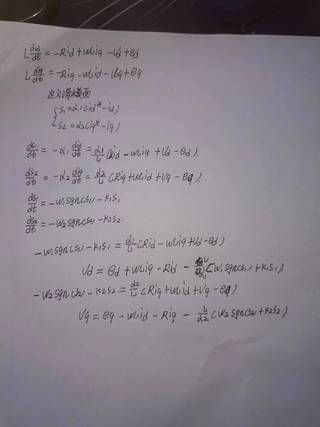 L did/dt = -Rid + wLiq - Vd + ed
L diq/dt = -Riq - wLid - Vq + eq
定义滑模面
{ S1 = α1(id* - id)
S2 = α2(iq* - iq)
ds1/dt = -α1 did/dt = α1/L (Rid - wLiq + Vd - ed)
ds2/dt = -α2 diq/dt = α2/L (Riq + wLid + Vq - eq)
ds1/dt = -w1sgn(s1) - k1s1
ds2/dt = -w2sgn(s2) - k2s2.
-w1sgn(s1) - k1s1 = α1/L (Rid - wLiq + Vd - ed)
Vd = ed + wLiq - Rid - L/α1 (w1sgn(s1) + k1s1)
-w2sgn(s2) - k2s2 = α2/L (Riq + wLid + Vq - eq)
Vq = eq - wLid - Riq - L/α2 (w2sgn(s2) + k2s2)